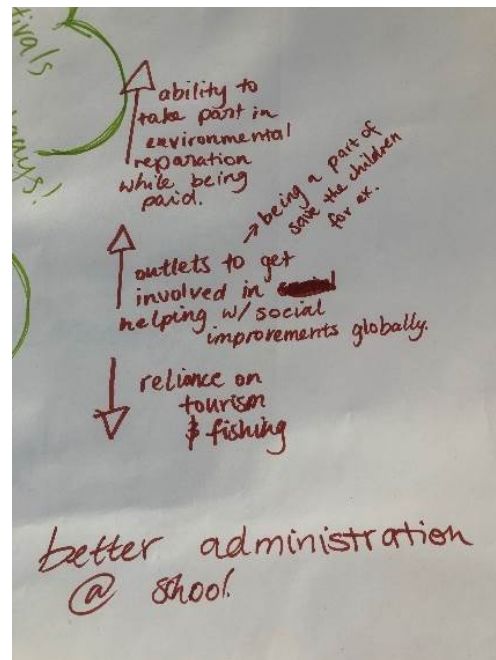 tivals
ways!
↑ ability to
take part in
environmental
reparation
while being
paid.
→ being a part of
save the children
for ex.
↑ outlets to get
involved in
helping w/ social
improvements globally.
↓ reliance on
tourism
& fishing
better administration
@ shool.